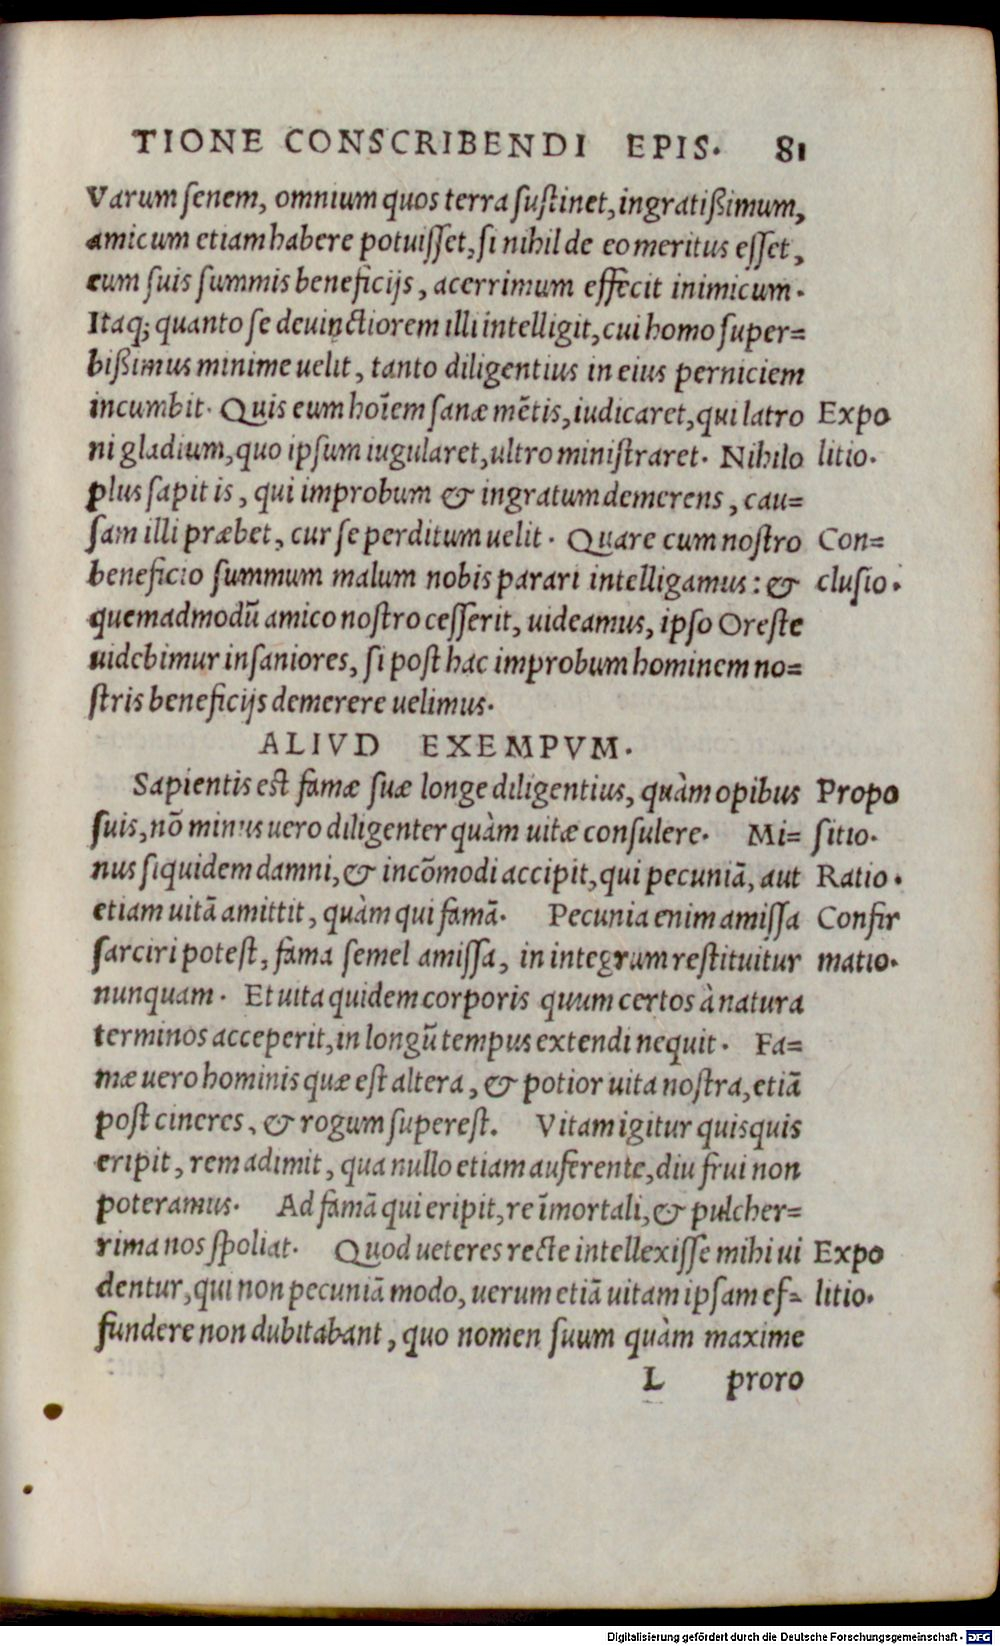 TIONE CONSCRIBENDI EPIS. 81
Varum ſenem, omnium quos terra ſuſtinet, ingratißimum,
amicum etiam habere potuiſſet, ſi nihil de eo meritus eſſet,
eum ſuis ſummis beneficijs, acerrimum effecit inimicum.
Itaq; quanto ſe deuinctiorem illi intelligit, cui homo ſuper=
bißimus minime uelit, tanto diligentius in eius perniciem
incumbit. Quis eum hoīem ſanæ mētis, iudicaret, qui latro Expo
ni gladium, quo ipſum iugularet, ultro miniſtraret. Nihilo litio.
plus ſapit is, qui improbum & ingratum demerens, cau=
ſam illi præbet, cur ſe perditum uelit. Quare cum noſtro Con=
beneficio ſummum malum nobis parari intelligamus: & cluſio.
quemadmodū amico noſtro ceſſerit, uideamus, ipſo Oreſte
uidebimur inſaniores, ſi poſt hac improbum hominem no=
ſtris beneficijs demerere uelimus.
ALIVD EXEMPVM.
Sapientis eſt famæ ſuæ longe diligentius, quàm opibus Propo
ſuis, nō minus uero diligenter quàm uitæ conſulere. Mi= ſitio.
nus ſiquidem damni, & incōmodi accipit, qui pecuniā, aut Ratio.
etiam uitā amittit, quàm qui famā. Pecunia enim amiſſa Confir
ſarciri poteſt, fama ſemel amiſſa, in integrum reſtituitur matio.
nunquam. Et uita quidem corporis quum certos à natura
terminos acceperit, in longū tempus extendi nequit. Fa=
mæ uero hominis quæ eſt altera, & potior uita noſtra, etiā
poſt cineres, & rogum ſupereſt. Vitam igitur quisquis
eripit, rem adimit, qua nullo etiam auferente, diu frui non
poteramus. Ad famā qui eripit, re īmortali, & pulcher=
rima nos ſpoliat. Quod ueteres recte intellexiſſe mihi ui Expo
dentur, qui non pecuniā modo, uerum etiā uitam ipſam ef= litio.
fundere non dubitabant, quo nomen ſuum quàm maxime
L proro
Digitalisierung gefördert durch die Deutsche Forschungsgemeinschaft - DFG